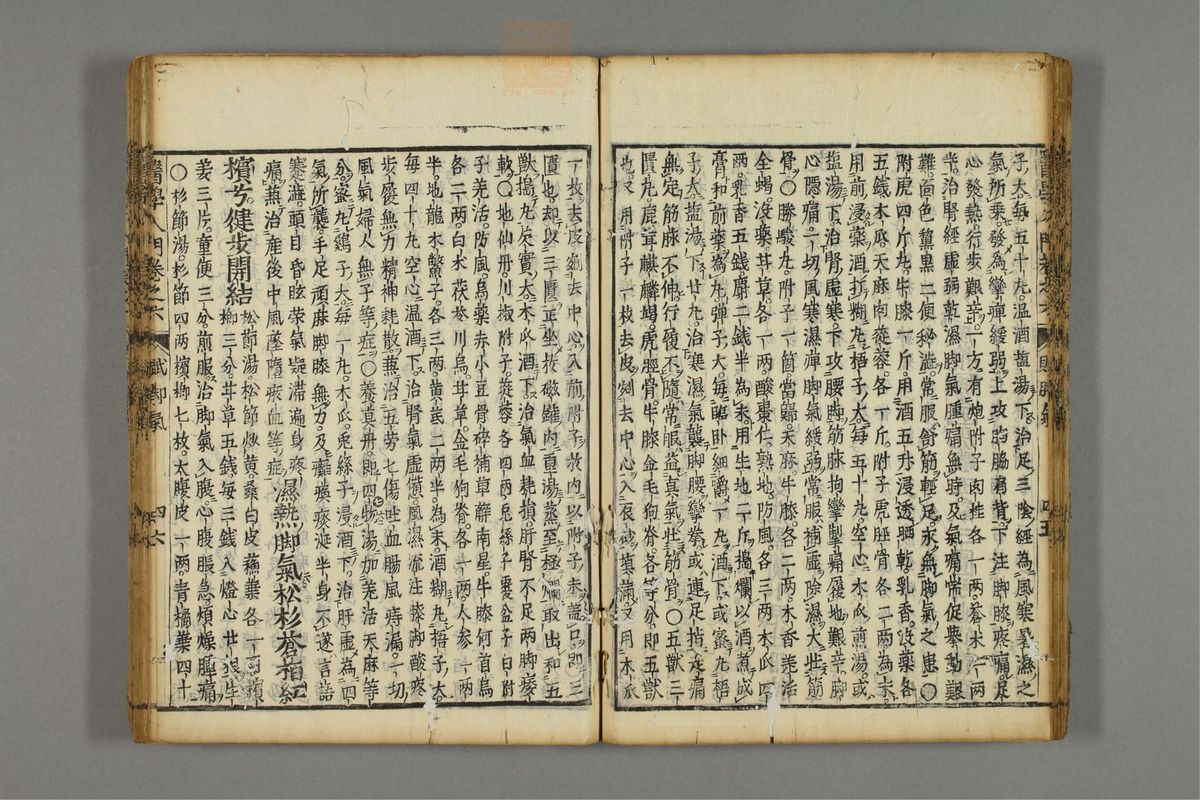 子大每五十丸温酒塩湯下治足三陰經為風寒暑濕之
氣所乗發為攣痺緩弱上攻胸脇肩背下注脚膝疼痛足
心發熱行歩艱辛一方有炮附子肉桂各一兩蒼朮一兩
半治腎經虚弱乾濕脚氣腫痛無時及氣痛常促舉動艱
難面色黧黒二便秘澁常服舒筋輕足永無脚氣之患○
附虎四斤丸牛膝一斤用酒五升浸透晒乾乳香没藥各
五錢木瓜天麻肉蓯蓉各一斤附子虎脛骨各二兩為末
用前浸藥酒打糊丸梧子大每五十丸空心木瓜煎湯或
塩湯下治腎虚寒下攻腰胸筋脉拘攣掣痛履地艱辛脚
心隠痛一切風寒濕痺脚氣緩弱常服補虚除濕大壮筋
骨○勝駿丸附子一箇當歸天麻牛膝各二兩木香羌活
全蝎没藥甘草各一兩酸棗仁熟地防風各三兩木瓜四
兩乳香五錢麝二錢半為末用生地二斤搗爛以酒煮成
膏和前藥為丸弾子大每臨卧細嚼一丸酒下或蜜丸梧
子大塩湯下廿丸治寒濕氣襲脚腰攣拳或連足指走痛
無定筋脉不伸行復不隨常服益真氣壮筋骨○五獸三
匱丸鹿茸麒麟竭虎脛骨牛膝金毛狗脊各等分即五獸
也又用附子一枚去皮剜去中心入辰砂填滿又用木瓜
一枚去皮剜去中心入前附子於内以附子末盖口即三
匱也却以三匱正坐於磁罐内重湯蒸至極爛取出和五
獸搗丸芡實大木瓜酒下治氣血耗損肝腎不足兩脚痿
軟○地仙丹川椒附子蓯蓉各四兩兎絲子覆盆子白附
子羌活防風烏藥赤小豆骨碎補萆薢南星牛膝何首烏
各二兩白朮茯苓川烏甘草金毛狗脊各一兩人参一兩
半地龍木鱉子各三兩黄芪二兩半為末酒糊丸梧子大
毎四十丸空心温酒下治腎氣虚憊風濕流注膝脚酸疼
歩履無力精神耗散兼治五労七傷吐血腸風痔漏一切
風氣婦人無子等症○養真丹即四物湯加羌活天麻等
分蜜丸鷄子大毎一丸木瓜兎絲子浸酒下治肝虚為四
氣所襲手足頑麻脚膝無力及癱瘓痰涎半身不遂言語
蹇澁頭目昏眩榮氣凝滞遍身疼
痛兼治産後中風墜墮瘀血等症
濕熱脚氣松杉蒼梔紅
檳兮健歩開結
松節湯松節炒黄桑白皮蘇葉各一
檳榔三分甘草五錢毎三錢入燈心廿根生
姜三片童便三分煎服治脚氣入腹心腹脹急煩燥腫痛
○杉節湯杉節四兩檳榔七枚大腹皮一兩青橘葉四十
醫學入門卷之六
武脚氣
四六
四五